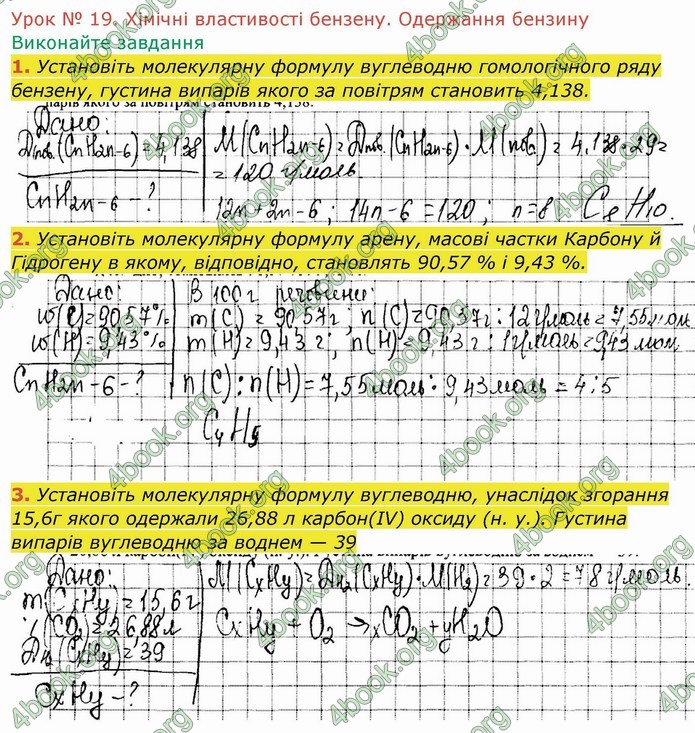 Урок № 19. Хімічні властивості бензену. Одержання бензину
Виконайте завдання
1. Установіть молекулярну формулу вуглеводню гомологічного ряду
бензену, густина випарів якого за повітрям становить 4,138.
парів якого за повітрям становить 4,138.
Дано: M(CnH2n-6) = Dпов.(CnH2n-6) · M(пов.) = 4,138 · 29 =
Dпов.(CnH2n-6) = 4,138
= 120 г/моль
CnH2n-6 - ? 12n + 2n - 6; 14n - 6 = 120; n = 8 C8H10.
2. Установіть молекулярну формулу арену, масові частки Карбону й
Гідрогену в якому, відповідно, становлять 90,57 % і 9,43 %.
Дано: В 100 г речовини:
w(C) = 90,57% m(C) = 90,57 г; n(C) = 90,57 г : 12 г/моль = 7,55 моль
w(H) = 9,43% m(H) = 9,43 г; n(H) = 9,43 г : 1 г/моль = 9,43 моль
CnH2n-6 - ? n(C) : n(H) = 7,55 моль : 9,43 моль = 4 : 5
C4H5
3. Установіть молекулярну формулу вуглеводню, унаслідок згорання
15,6г якого одержали 26,88 л карбон(IV) оксиду (н. у.). Густина
випарів вуглеводню за воднем — 39
Дано: M(CxHy) = DH2(CxHy) · M(H2) = 39 · 2 = 78 г/моль.
m(CxHy) = 15,6 г
V(CO2) = 26,88 л CxHy + O2 → xCO2 + yH2O
DH2(CxHy) = 39
CxHy - ?
4book.org